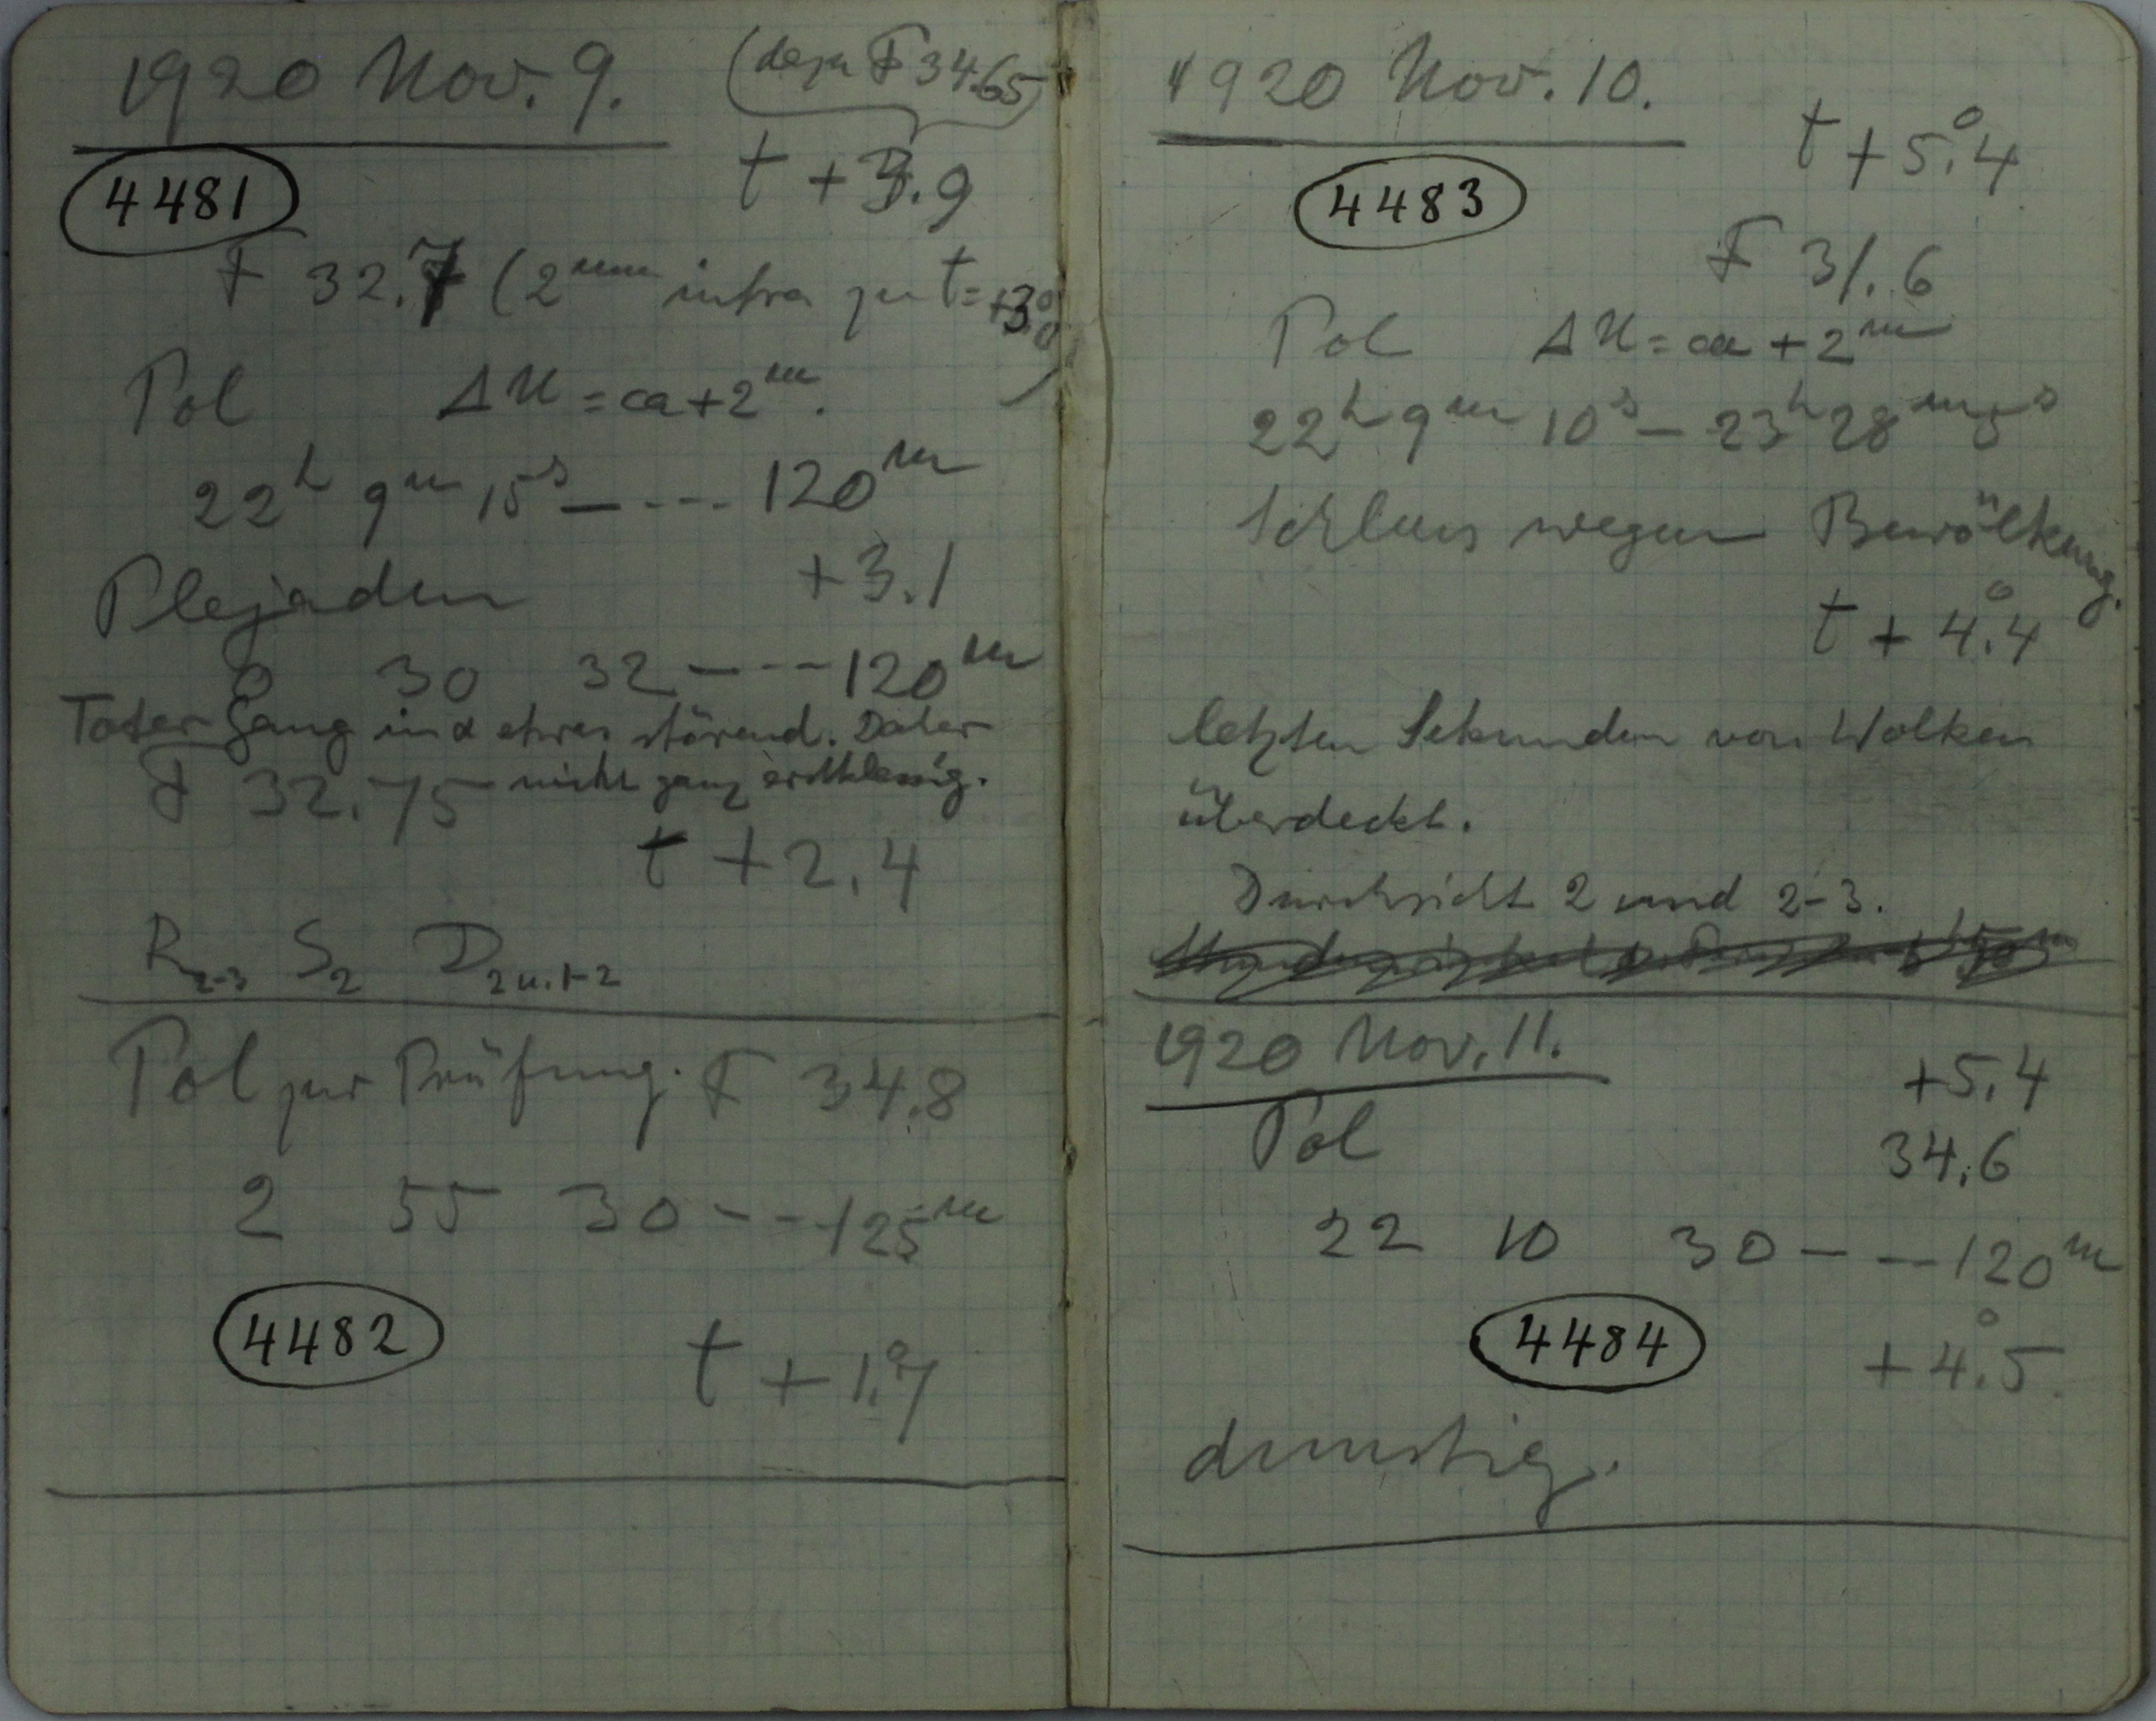 1920 Nov. 9.
(dazu F 34.65)
t + 3.9
4481
F 32.7 (2mm infra zu t = +3°.0)
Pol ΔU = ca + 2m.
22h 9m 15s — --- 120m
Plejaden +3.1
0 30 32 - - - 120m
Toter Gang in α etwas störend. Daher
F 32.75 nicht ganz erstklassig.
t + 2.4
R2-3 S2 D2 u. 1-2
Pol zur Prüfung. F 34.8
2 55 30 - - - 125m
4482
t + 1°.7
1920 Nov. 10.
t + 5°.4
4483
F 31.6
Pol ΔU = ca + 2m
22h 9m 10s — 23h 28m 5s
Schluss wegen Bewölkung.
t + 4°.4
letzten Sekunden von Wolken
überdeckt.
Durchsicht 2 und 2-3.
1920 Nov. 11.
+5.4
Pol
34.6
22 10 30 - - - 120m
4484
+ 4°.5
dunstig.